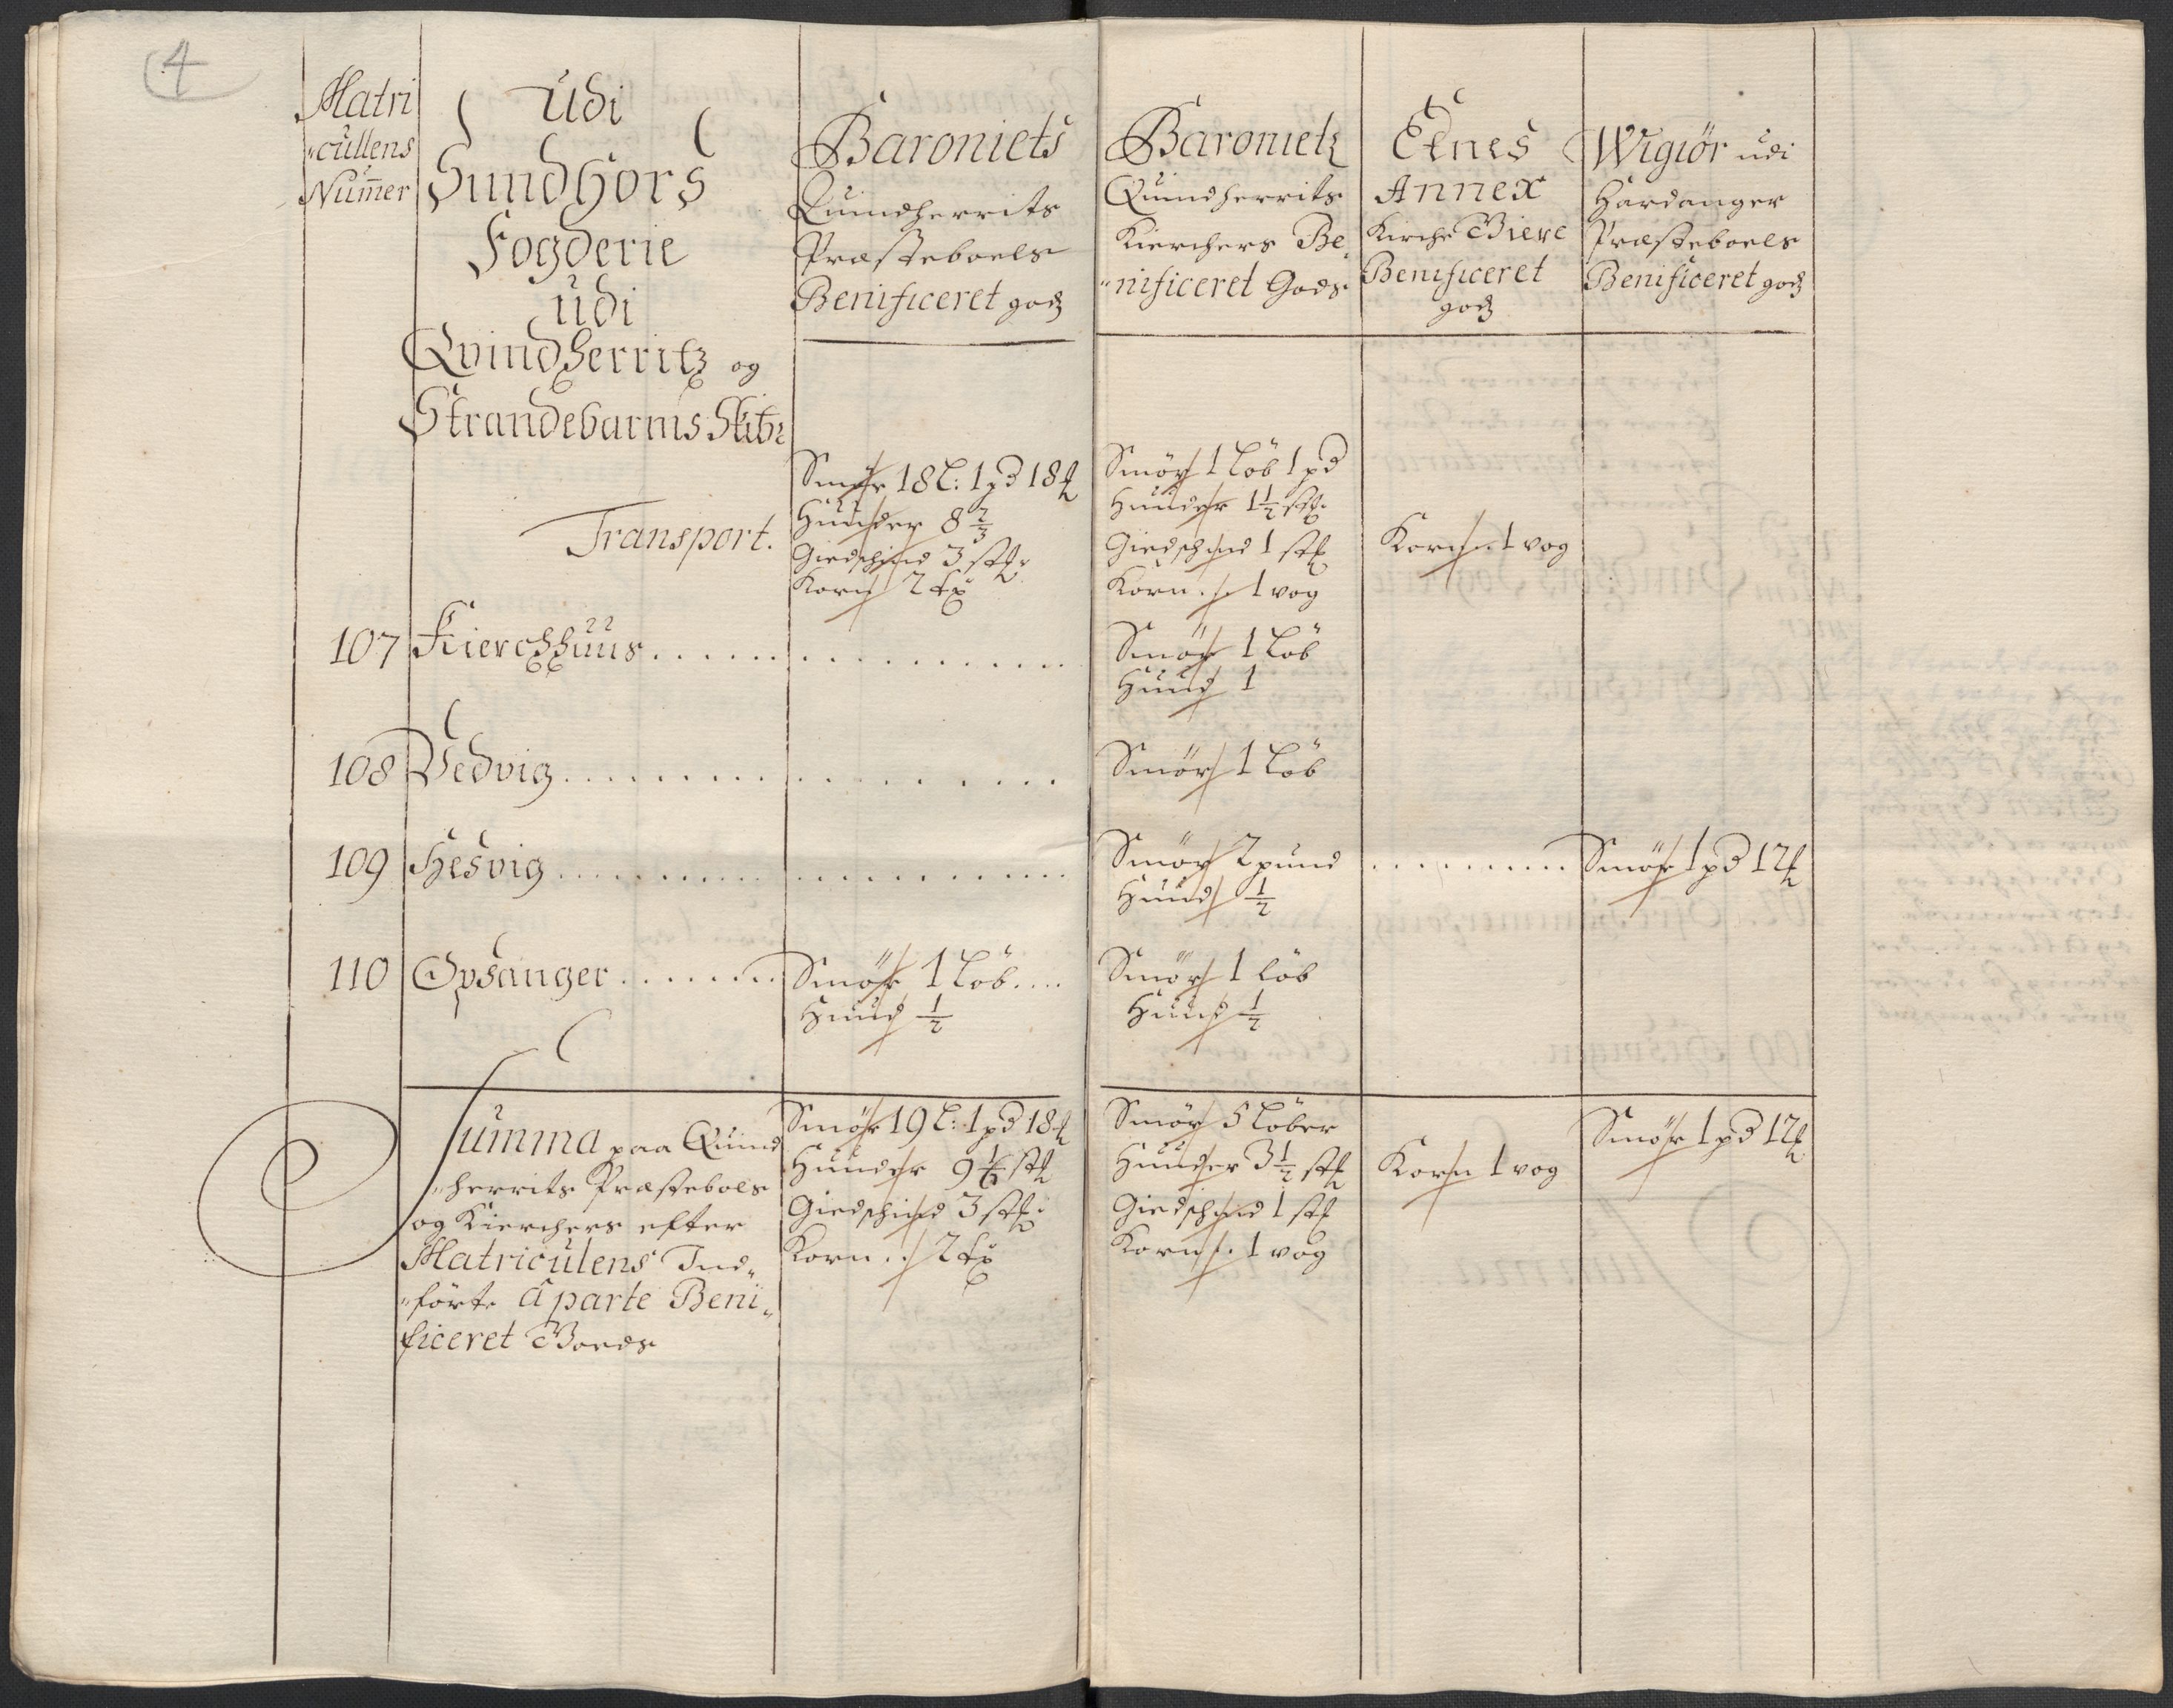 4
Matri
"cullens
Nummer
Udi
Sundhors
Fogderie
udi
Qvindherritz og
Strandebarms Skibr
Baroniets
Quindherrits
Præsteboels
Benificeret godz
Baronietz
Quindherrits
Kierchers Be
"nificeret Gods
Etnes
Annex
Kirche Biere
Benificeret
godz
Wigiör udi
Hardanger
Præsteboels
Benificeret godz
Transport.
Smör 18 L: 1 pd 18 ℔
Huuder 8 2/3
Giedschind 3 stk
Korn 2 tr
Smör 1 Löb 1 pd
Huuder 1 1/2 stk
Giedschind 1 stk
Korn . . 1 vog
Korn . 1 vog
107 Kierchhuus . . . . . . . . . . . . . . . . Smör 1 Löb
Huud 1
108 Vedvig . . . . . . . . . . . . . . . . Smör 1 Löb
109 Hesvig . . . . . . . . . . . . . . . . Smör 2 pund . . . . . . . . . Smör 1 pd 12 ℔
Huud 1/2
110 Opsanger . . . . . . . Smör 1 Löb . . . . Smör 1 löb
Huud 1/2 Huud 1/2
Summa paa Quind
"herrits Præstebols
og Kierchers efter
Matriculens Ind„
"förte á parte Beni„
ficeret Goeds
Smör 19 L: 1 pd 18 ℔
Huuder 9 1/6 stk
Giedschind 3 stk
Korn . . 2 tr
Smör 5 Löber
Huuder 3 1/2 stk
Giedschind 1 stk
Korn . 1 vog
Korn 1 vog
Smör 1 pd 12 ℔